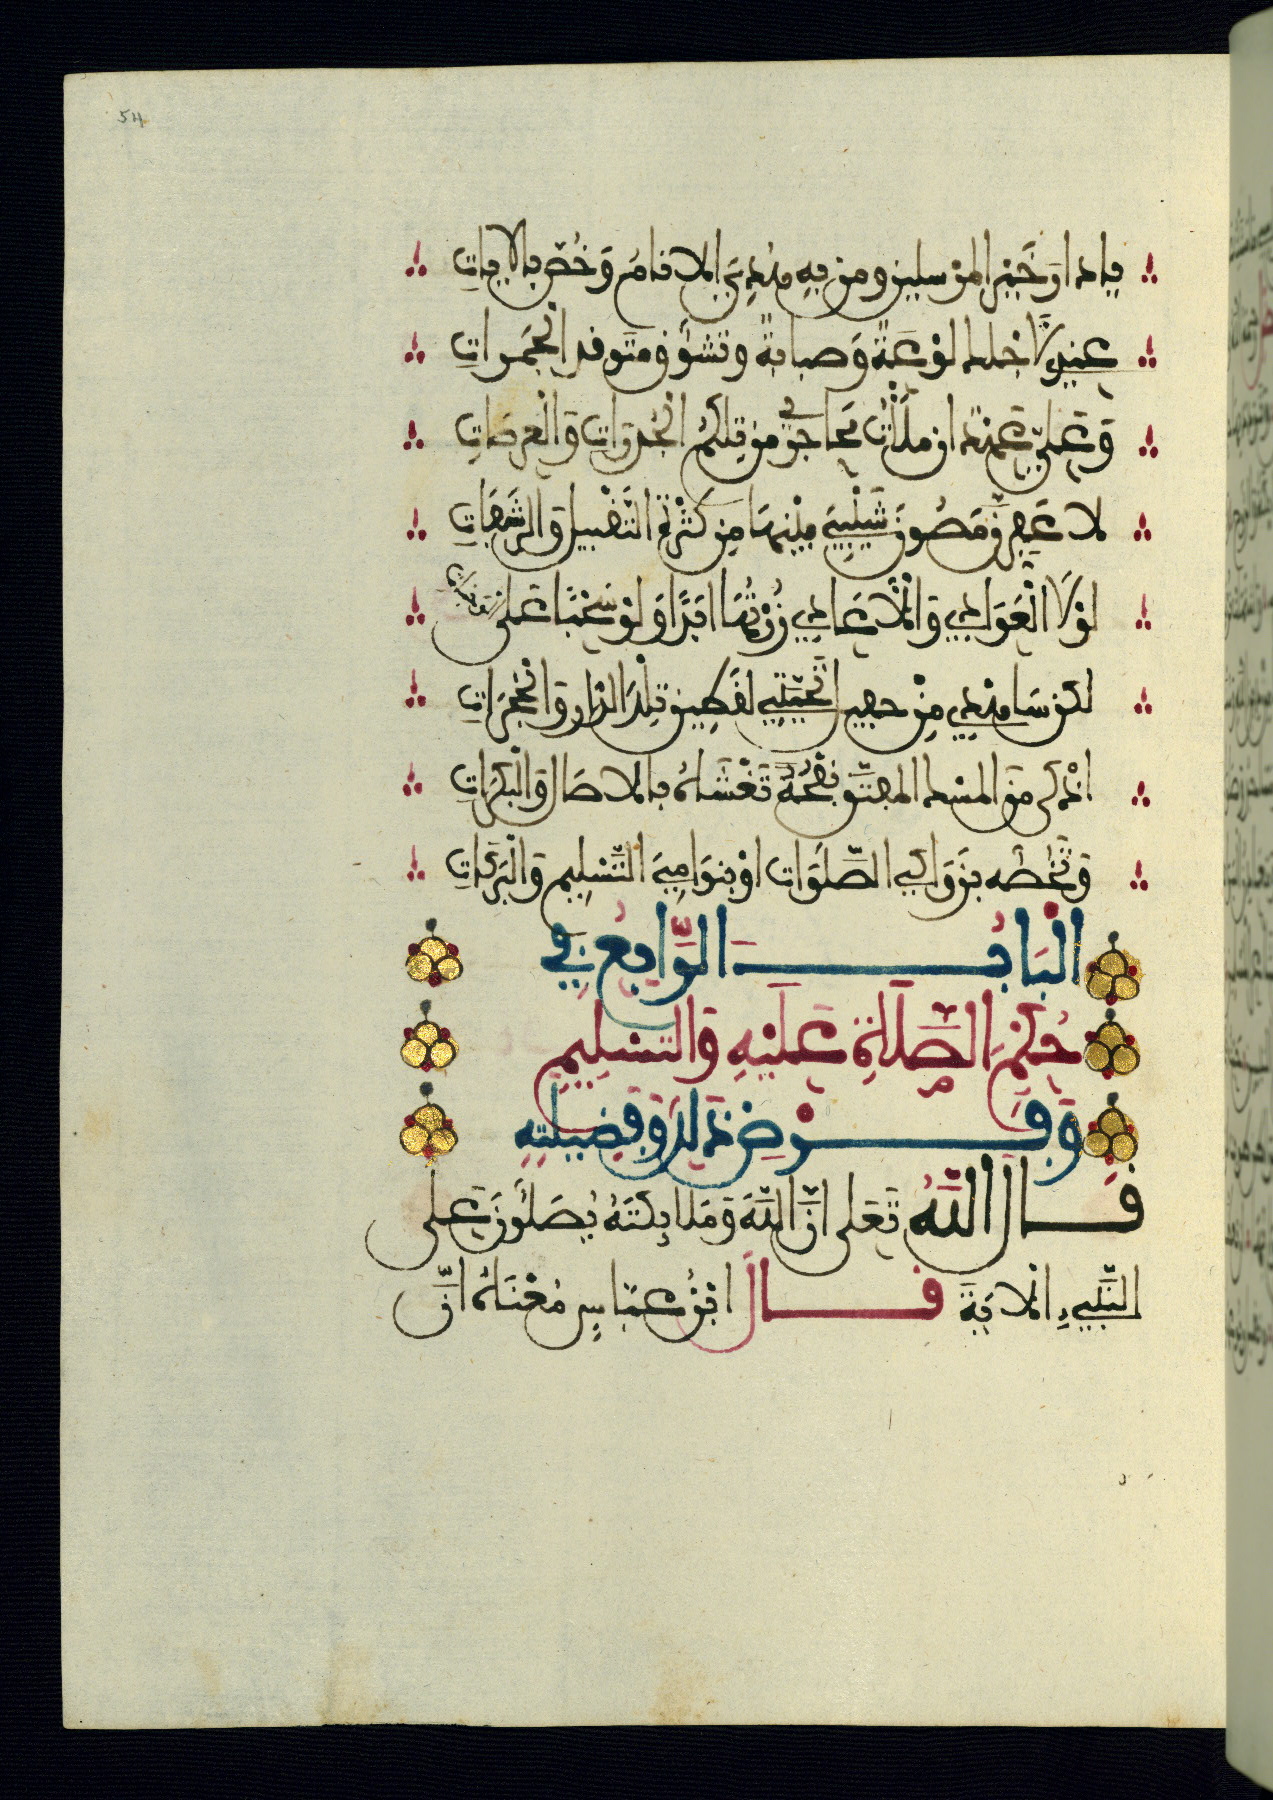 54
يا دار خير المرسلين ومن به هدي الانام وخص بالايات
عندي لاجلك لوعة وصبابة وتشوق متوقد الجمرات
وعلي عهد ان ملأت محاجري من تلكم الجدرات والعرصات
لاعفرن مصون شيبي بينها من كثرة التقبيل والرشفات
لولا العوادي والاعادي زرتها ابدا ولو سحبا على الوجنات
لكن ساهدي من حفيل تحيتي لقطين تلك الدار والحجرات
اذكى من المسك المفتق نفحة تغشاه بالاصال والبكرات
وتخصه بزواكي الصلوات ونوامي التسليم والبركات
الباب الرابع في
حكم الصلاة عليه والتسليم
وفرض ذلك وفضيلته
قال الله تعلى ان الله وملايكته يصلون على
النبيء الاية قال ابن عباس معناه ان